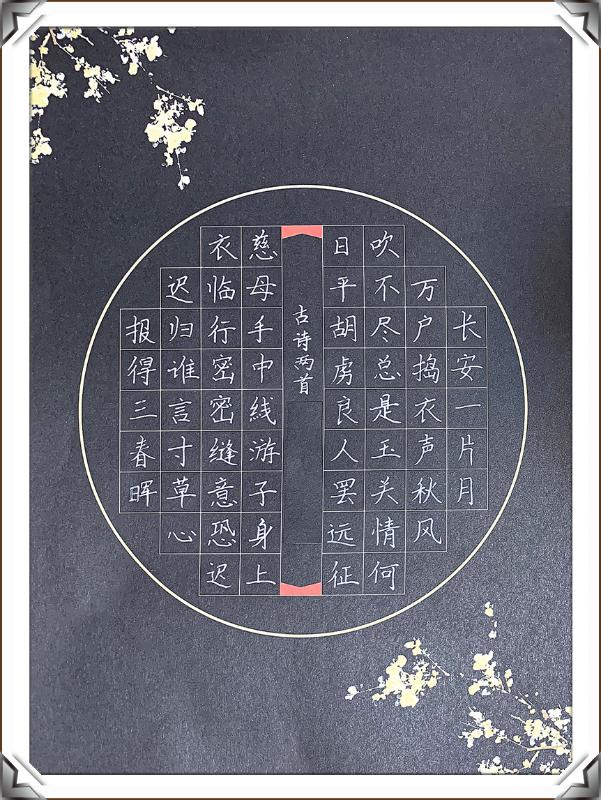 长安一片月
万户捣衣声秋风
吹不尽总是玉关情何
日平胡虏良人罢远征
古诗两首
慈母手中线游子身上
衣临行密密缝意恐迟
迟归谁言寸草心
报得三春晖